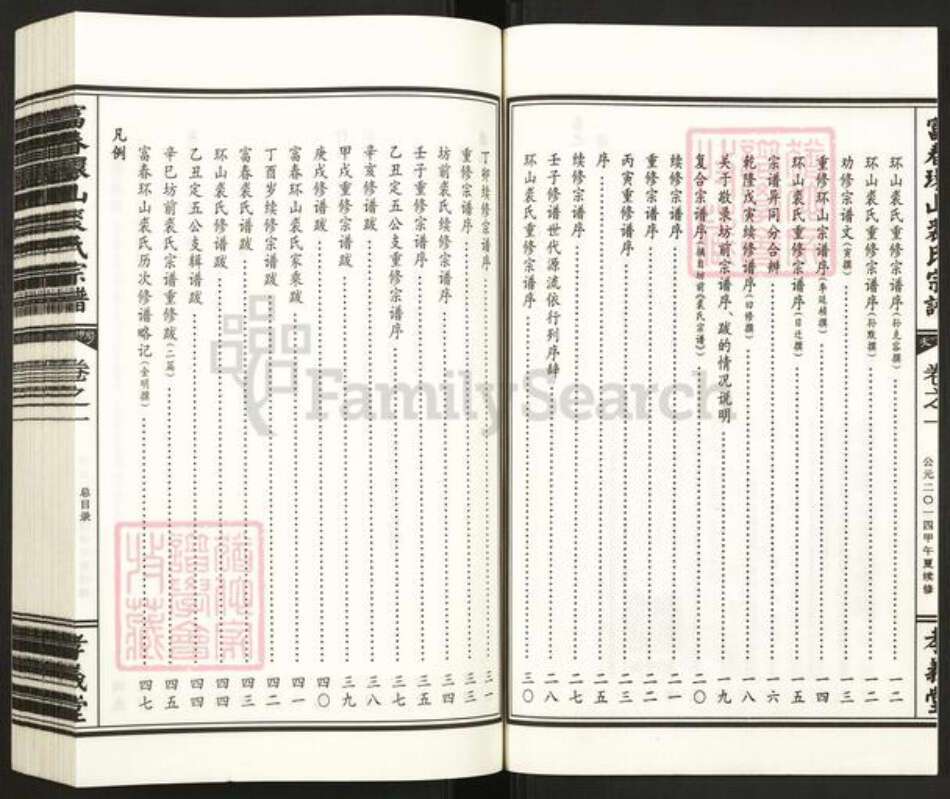 富春环山裘氏宗谱
卷之一
公元二〇一四甲午夏续修
孝义堂
环山裘氏重修宗谱序（孙克容撰）……一二
环山裘氏重修宗谱序（孙默撰）……一二
劝修宗谱文（寅撰）……一三
重修环山宗谱序（李延桢撰）……一四
环山裘氏重修宗谱序（日迁撰）……一五
宗谱异同分合辨……一六
乾隆戊寅续修谱序（曰修撰）……一八
关于敬录坊前宗谱序、跋的情况说明……一九
复合宗谱序（摘自坊前《裘氏宗谱》）……二〇
续修宗谱序……二一
重修宗谱序……二二
丙寅重修谱序……二三
序……二五
续修宗谱序……二七
壬子修谱世代源流依行列序辞……二八
环山裘氏重修宗谱序……三〇
丁卯续修宗谱序……三一
重修宗谱序……三三
坊前裘氏续修宗谱序……三四
壬子重修宗谱序……三五
乙丑定五公支重修宗谱序……三七
辛亥修谱跋……三八
甲戌重修宗谱跋……三九
庚戌修谱跋……四〇
富春环山裘氏家乘跋……四一
丁酉岁续修宗谱跋……四二
富春裘氏谱跋……四三
环山裘氏修谱跋……四四
乙丑定五公支辑谱跋……四四
辛巳坊前裘氏宗谱重修跋（二篇）……四五
富春环山裘氏历次修谱略记（金明撰）……四七
凡例
富春环山裘氏宗谱
卷之一
总目录
孝义堂
FamilySearch